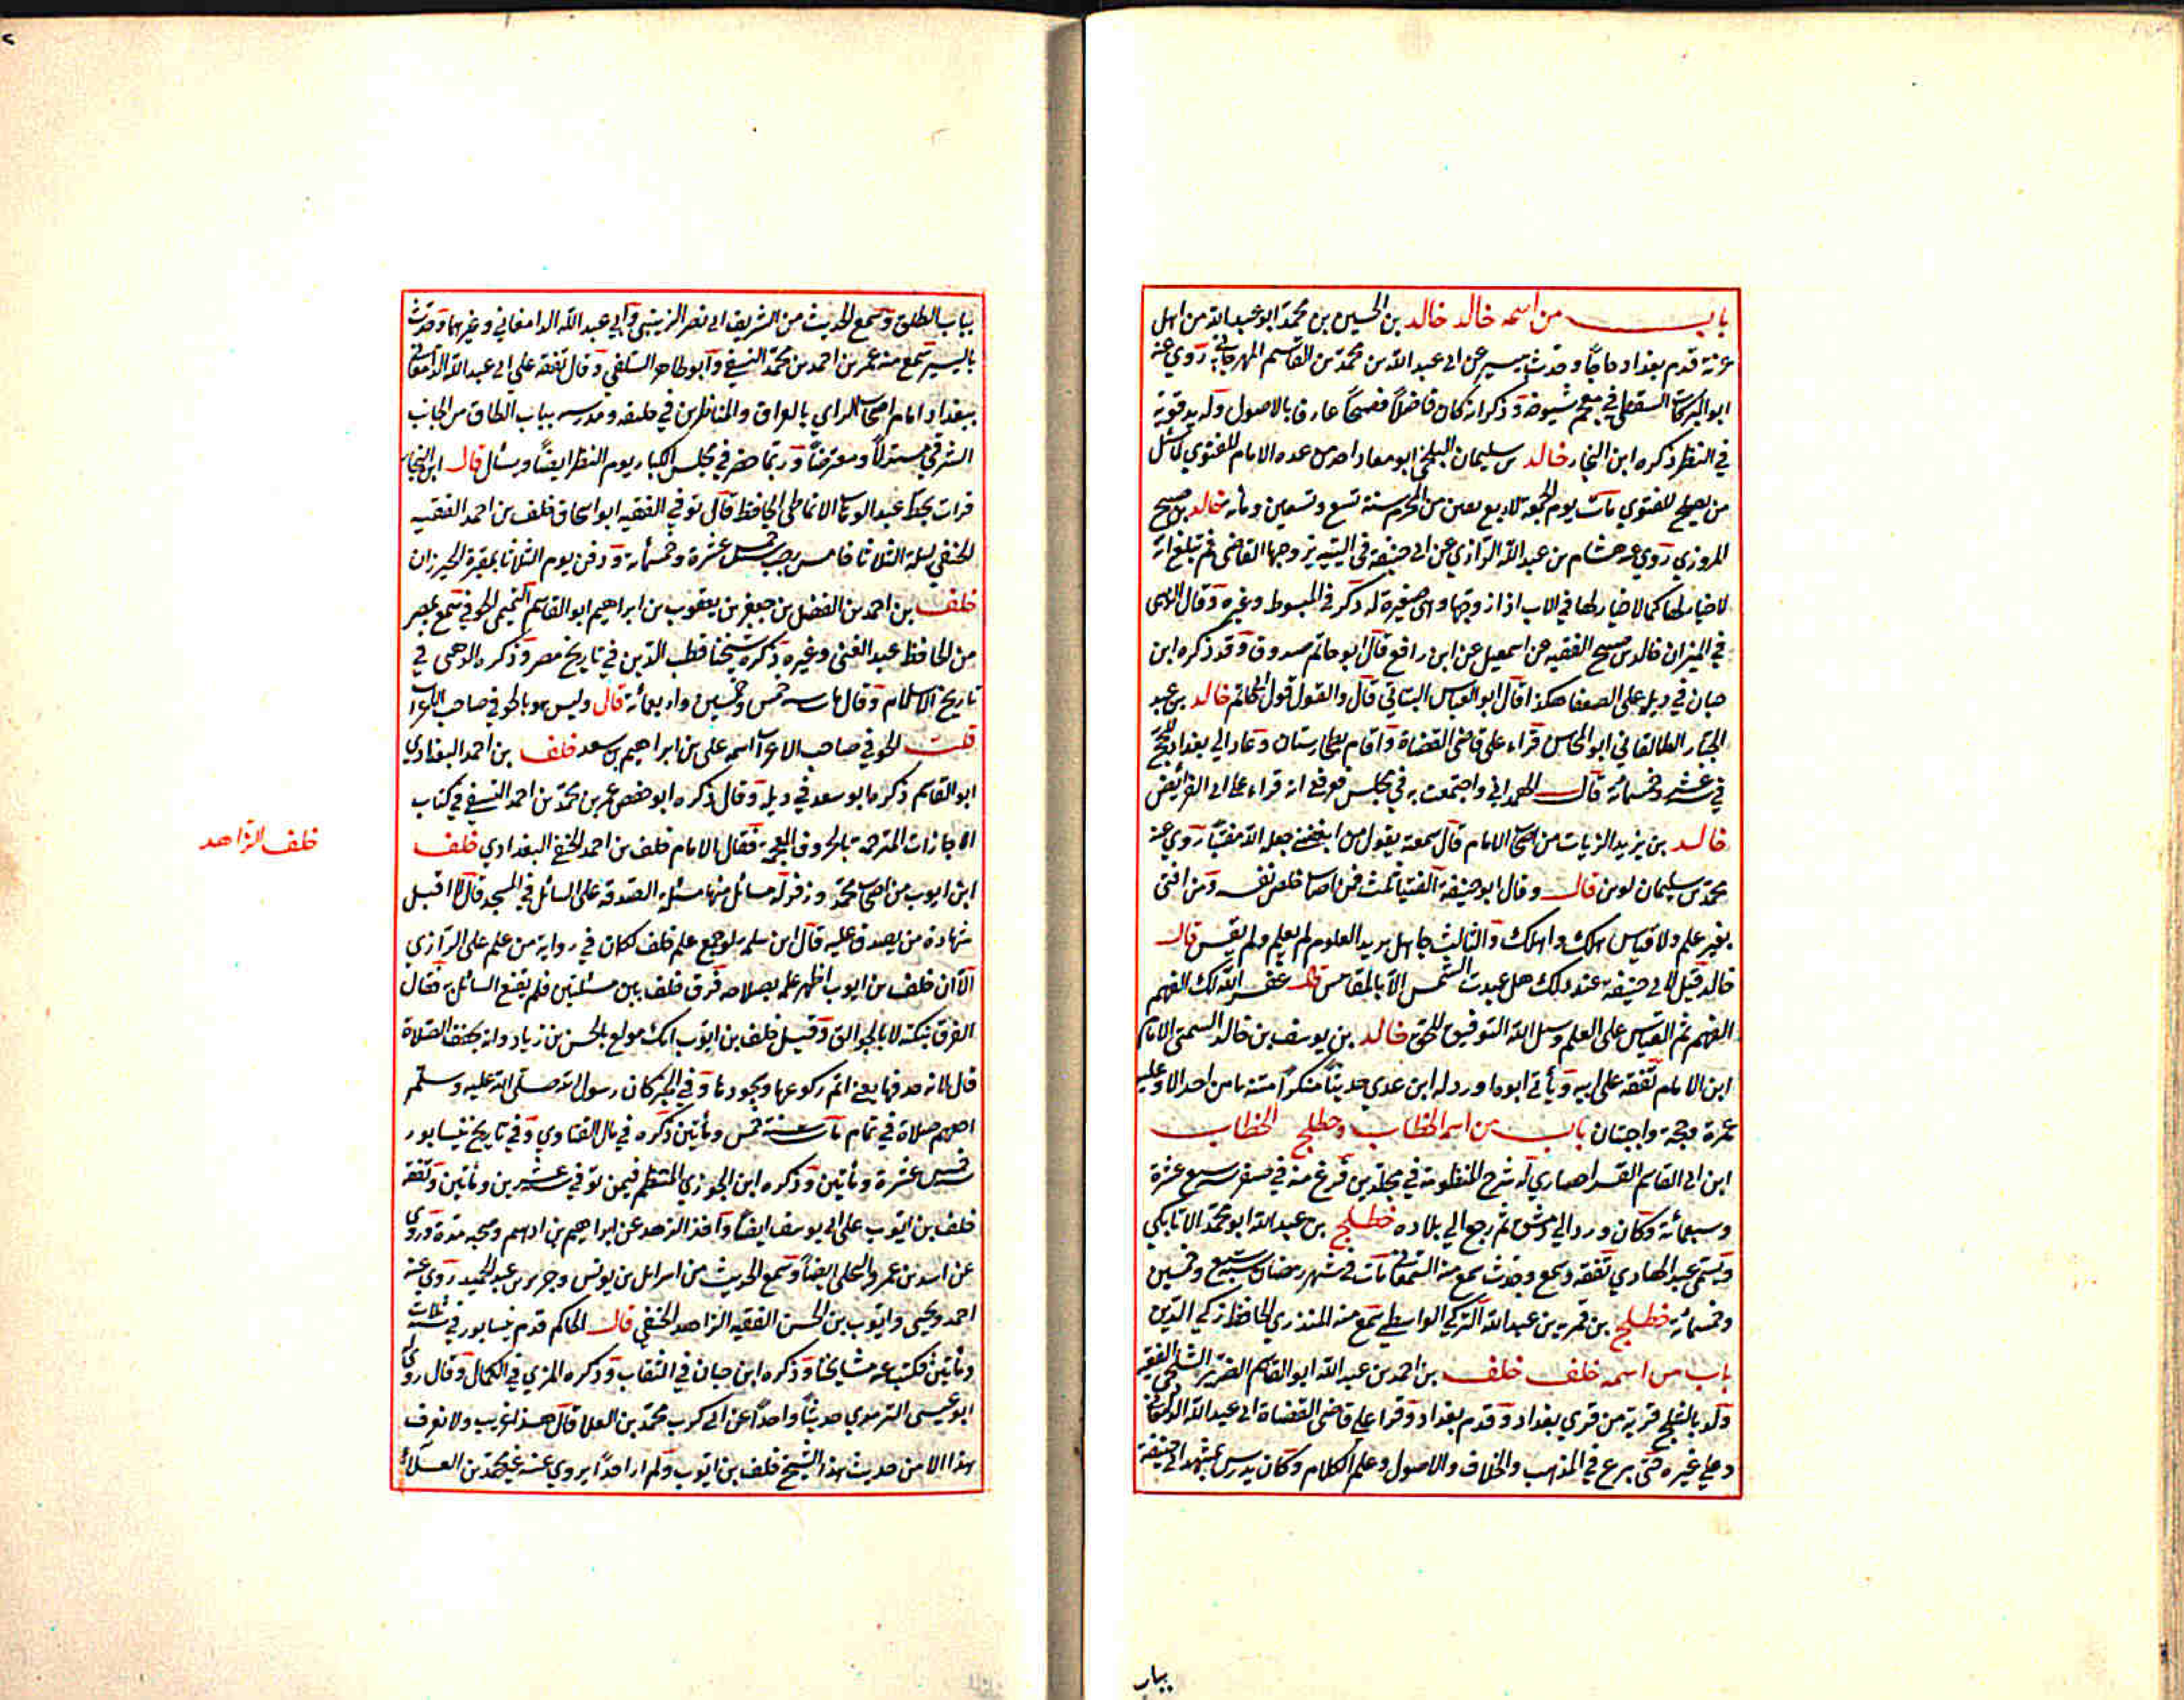 باب من اسمه خالد خالد بن الحسين بن محمد ابو عبد الله من اهل
غزنة قدم بغداد حاجا وحدث بيسير عن ابي عبد الله بن محمد بن القاسم المهرجاني روي عنه
ابو البركات السقطي في معجم شيوخه وذكر انه كان فاضلا فصيحا عارفا بالاصول وله يد قوية
في النظر ذكره ابن النجار خالد بن سليمان البلخي ابو معاذ احد من عده الامام للفتوي لما سئل
من يصلح للفتوي مات يوم الجمعة لاربع بقين من المحرم سنة تسع وتسعين ومائة خالد بن صبيح
المروزي روي عنه هشام بن عبد الله الرازي عن ابي حنيفة في اليتيمة يزوجها القاضي ثم تبلغ انه
لا خيار لها كما لا خيار لها في الاب اذا زوجها وهي صغيرة له ذكر في المبسوط وغيره وقال الذهبي
في الميزان خالد بن صبيح الفقيه عن اسمعيل عن ابن رافع قال ابو حاتم صدوق وقد ذكره ابن
حبان في ذيله على الضعفا هكذا قال ابو العباس البناتي قال والقول قول ابي حاتم خالد بن عبد
الجبار الطالقاني ابو المحاسن قراء على قاضي القضاة واقام بطخارستان وعاد الي بغداد للحج
في عشر وخمسمائة قال الهمداني واجتمعت به في مجلس فعرفني انه قراء علي ابي الفرائض
خالد بن يزيد الزيات من اصحاب الامام قال سمعته يقول من ابغضني جعله الله مفتيا روي عنه
محمد بن سليمان لوين قال وقال ابو حنيفة الفتيا ثلث فمن اصاب خلص نفسه ومن افتى
بغير علم ولا قياس اهلك واهلك والثالث جاهل يريد العلوم لم يعلم ولم يقس قال
خالد قيل لابي حنيفة عند ذلك هل عبدت الشمس الا بالمقاييس قال غفر الله لك الفهم
الفهم ثم القياس على العلم وسل الله التوفيق للحق خالد بن يوسف بن خالد السمتي الامام
ابن الامام تفقه على ابيه ويأتي ابوه اورد له ابن عدي حديثا منكرا متنه ما من احد الا وعليه
عمرة وحجة واجبتان باب من اسمه الخطاب وخطلج الخطاب
ابن ابي القاسم القراحصاري له شرح المنظومة في مجلدين فرغ منه في صفر سبع عشرة
وسبعمائة وكان ورد الي دمشق ثم رجع الي بلاده خطلج بن عبد الله ابو محمد الاتابكي
ويسمى عبد الهادي تفقه وسمع وحدث سمع منه السمعاني مات في شهر رمضان سنة سبع وخمسين
وخمسمائة خطلج بن قمرية بن عبد الله التركي الواسطي سمع منه المنذري الحافظ زكي الدين
باب من اسمه خلف خلف بن احمد بن عبد الله ابو القاسم الضرير الشلحي الفقيه
ولد بالشلح قرية من قري بغداد وقدم بغداد وقرا علي قاضي القضاة ابي عبد الله الدامغاني
وعلي غيره حتى برع في المذهب والخلاف والاصول وعلم الكلام وكان يدرس بمشهد ابي حنيفة
بباب
بباب الطاق وسمع الحديث من الشريف ابي نصر الزينبي وابي عبد الله الدامغاني وغيرهما وحدث
باليسير سمع منه عمر بن احمد بن محمد النسفي وابو طاهر السلفي وقال تفقه على ابي عبد الله الدامغاني
ببغداد امام اصحاب الراي بالعراق والمناظرين في حلقته ومدرسه بباب الطاق من الجانب
الشرقي مستدلا ومعترضا وربما حضر في مجلس الكبار يوم النظر ايضا ويسأل قال ابن النجار
قرات بخط عبد الوهاب الانماطي الحافظ قال توفي الفقيه ابو اسحاق خلف بن احمد الفقيه
الحنفي ليلة الثلاثا خامس رجب خمس عشرة وخمسمائة ودفن يوم الثلاثا بمقبرة الخيزران
خلف بن احمد بن الفضل بن جعفر بن يعقوب بن ابراهيم ابو القاسم التميمي الحوفي سمع بمصر
من الحافظ عبد الغني وغيره ذكره شيخنا قطب الدين في تاريخ مصر وذكره الذهبي في
تاريخ الاسلام وقال مات سنة خمس وخمسين واربعمائة قال وليس هو بالحوفي صاحب الاعراب
قلت الحوفي صاحب الاعراب اسمه علي بن ابراهيم بن سعد خلف بن احمد البغدادي
ابو القاسم ذكره ابو سعد في ذيله وقال ذكره ابو حفص عمر بن محمد بن احمد النسفي في كتاب
الاجازات المترجمة بالحروف المعجمة فقال الامام خلف بن احمد الحنفي البغدادي خلف
خلف الزاهد
ابن ايوب من اصحاب محمد وزفر له مسائل منها مسئلة الصدقة على السائل في المسجد قال لا اقبل
شهادة من يصدق عليه قال ابن سلمة لو جمع علم خلف لكان في رواية من علم علي الرازي
الا ان خلف بن ايوب اظهر علمه بصلاحه فرق خلف بين مسئلتين فلم يقنع السائل به فقال
الفرق بنكتة لا بالجوالق وقيل لخلف بن ايوب انك مولع بالحسن بن زياد وانه يخفف الصلاة
قال لانه حذفها يعني اتم ركوعها وسجودها وفي الخبر كان رسول الله صلى الله عليه وسلم
اخفهم صلاة في تمام مات سنة خمس ومأتين ذكره في مال الفتاوي وفي تاريخ نيسابور
خمس عشرة ومأتين وذكره ابن الجوزي في المنتظم فيمن توفي سنة عشرين ومأتين وتفقه
خلف بن ايوب على ابي يوسف ايضا واخذ الزهد عن ابراهيم بن ادهم وصحبه مدة وروي
عن اسد بن عمرو البجلي ايضا وسمع الحديث من اسرائيل بن يونس وجرير بن عبد الحميد روي عنه
احمد ويحيى وايوب بن الحسن الفقيه الزاهد الحنفي قال الحاكم قدم نيسابور في سنة ثلاث
ومأتين فكتب عنه مشايخنا وذكره ابن حبان في الثقات وذكره المزي في الكمال وقال روى
ابو عيسى الترمذي حديثا واحدا عن ابي كريب محمد بن العلا قال هذا غريب ولا نعرف
هذا الا من حديث هذا الشيخ خلف بن ايوب ولم ار احدا يروي عنه غير محمد بن العلاء